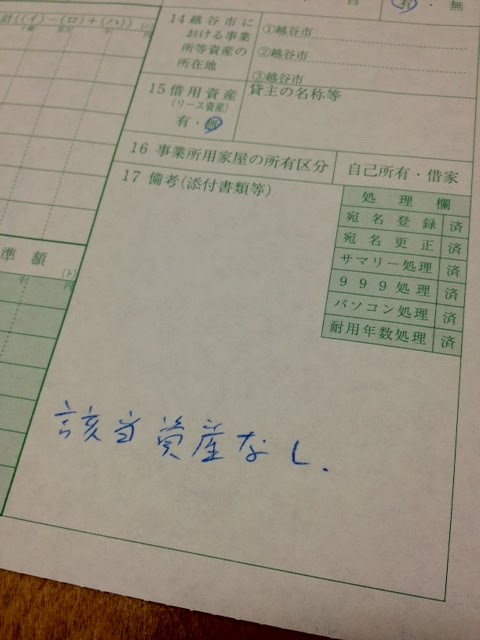 有・無
計((イ)－(ロ)＋(ハ))
14 越谷市に
おける事業
所等資産の
所在地
①越谷市
②越谷市
③越谷市
15 借用資産
(リース資産)
有・無
貸主の名称等
16 事業所用家屋の所有区分
自己所有・借家
17 備考(添付書類等)
処理欄
宛名登録 済
宛名更正 済
サマリー処理 済
999処理 済
パソコン処理 済
耐用年数処理 済
準額
(ト)
円
該当資産なし.